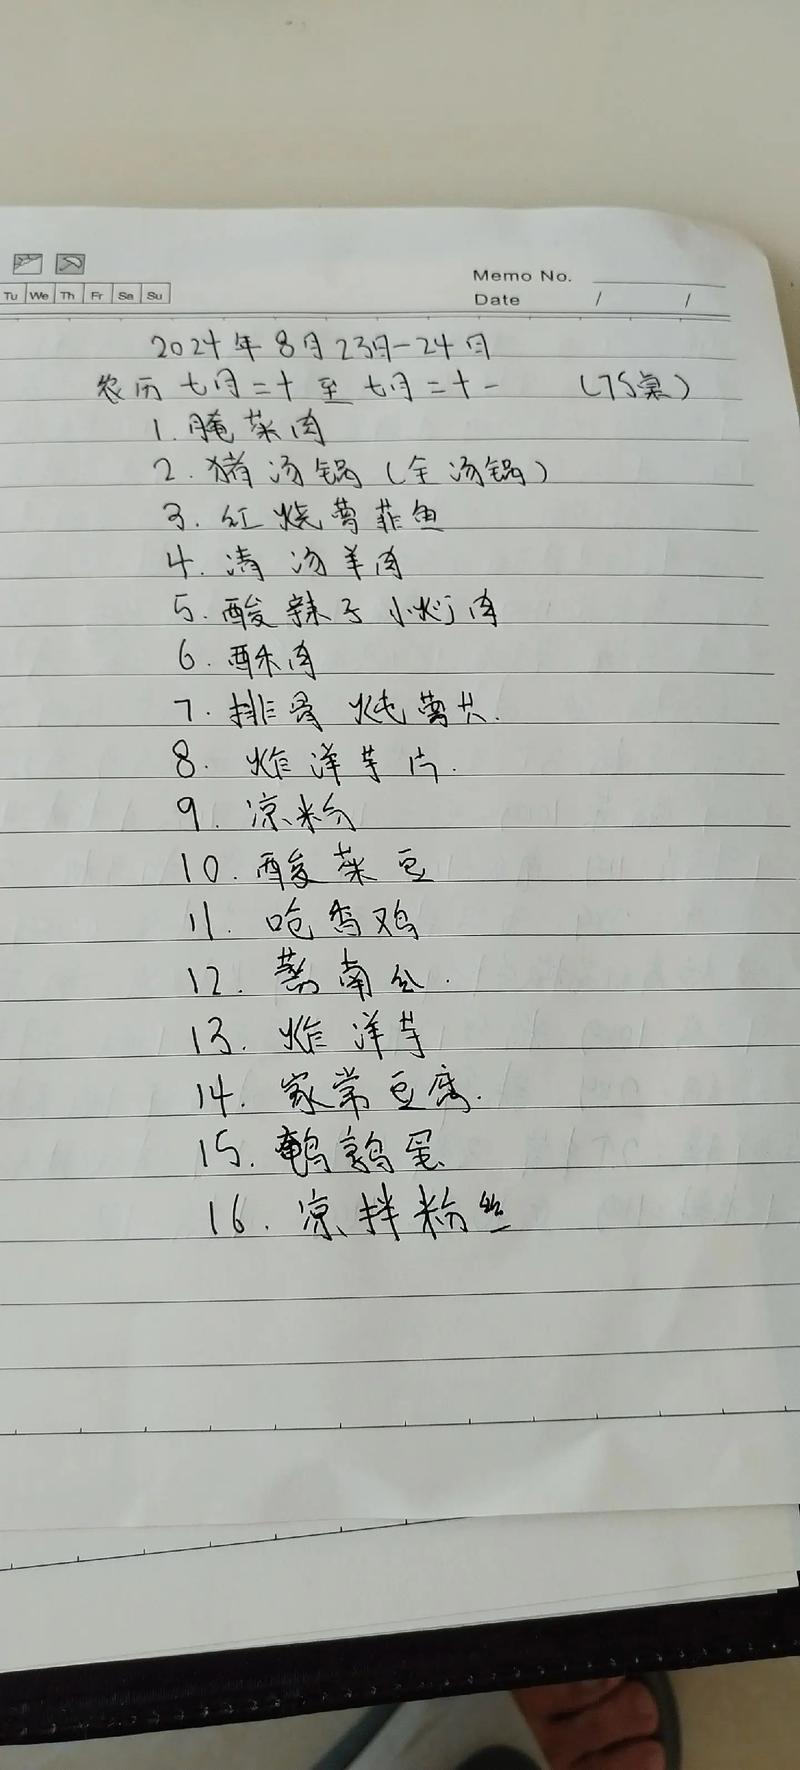 Memo No.
Tu We Th Fr Sa Su
Date / /
2024年8月23日-24日
农历七月二十至七月二十一 (75桌)
1.腌菜肉
2.猪汤锅(全汤锅)
3.红烧萝菲鱼
4.清汤羊肉
5.酸辣子小炒肉
6.酥肉
7.排骨炖萝卜.
8.炸洋芋片.
9.凉粉
10.酸菜豆
11.呛香鸡
12.蒸南瓜.
13.炸洋芋
14.家常豆腐.
15.鹌鹑蛋
16.凉拌粉丝